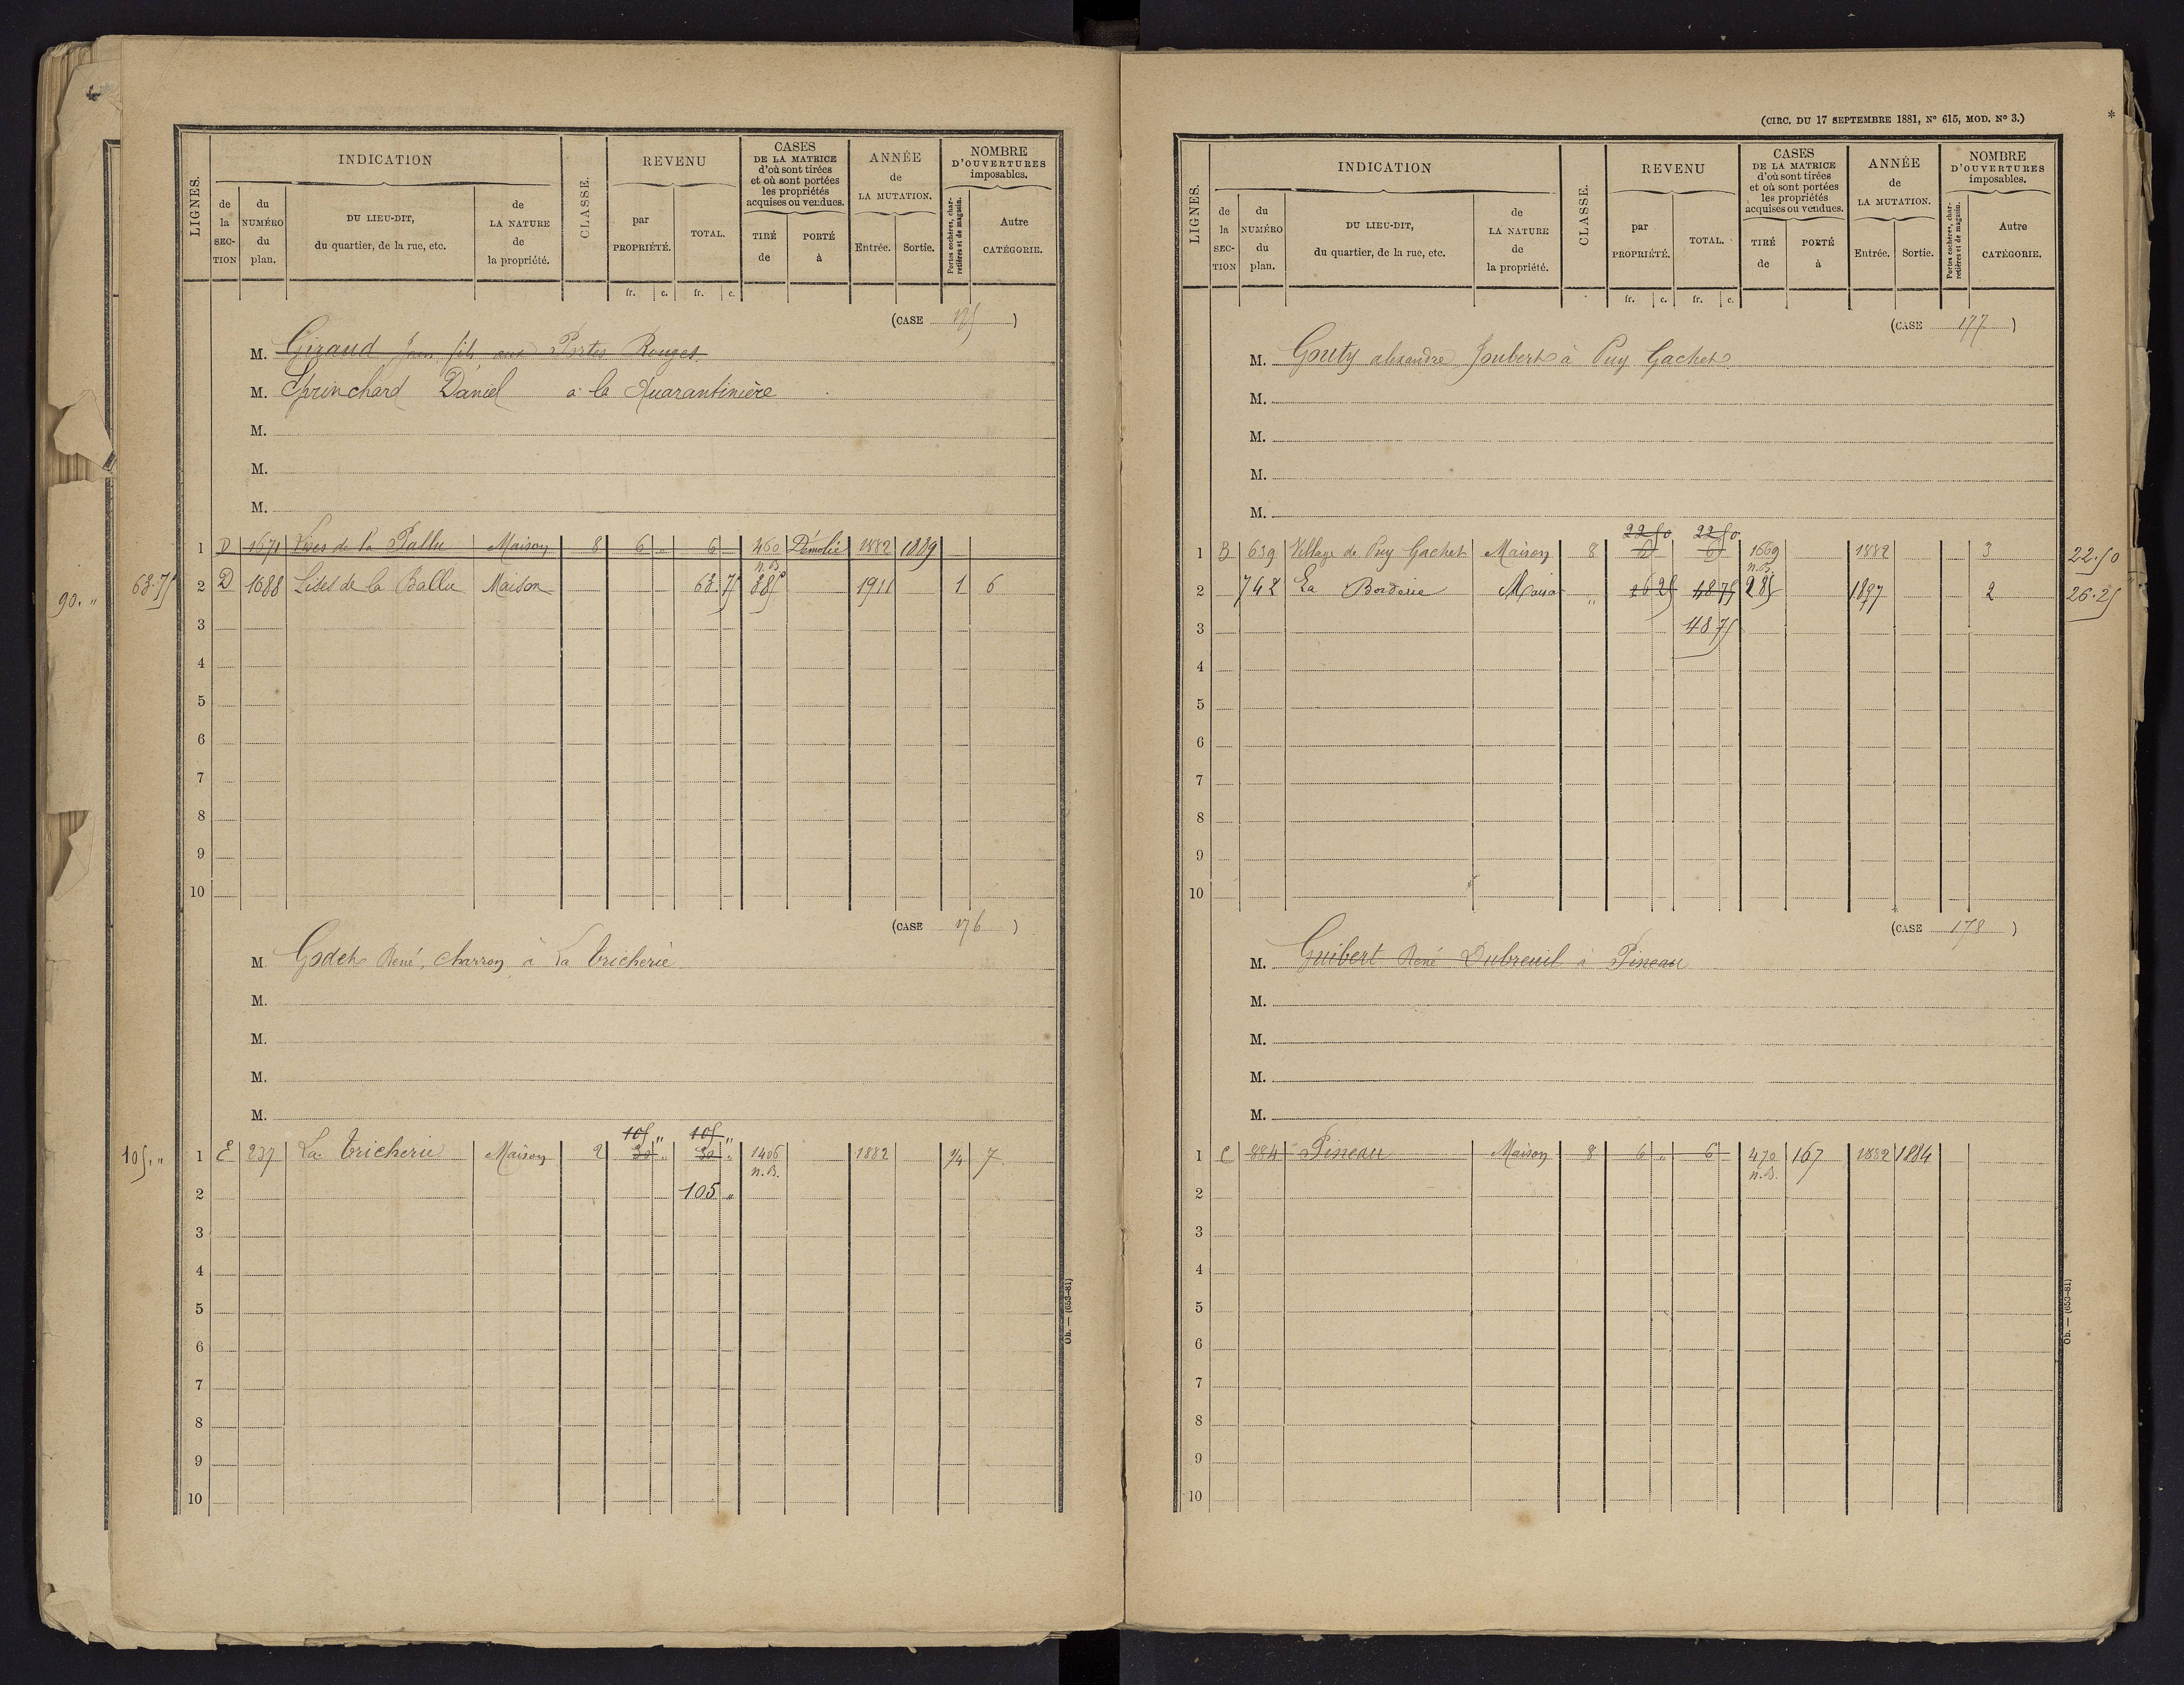 LIGNES.
INDICATION
de la SECTION
du NUMÉRO du plan.
DU LIEU-DIT, du quartier, de la rue, etc.
de LA NATURE de la propriété.
CLASSE.
REVENU
par PROPRIÉTÉ.
TOTAL.
CASES DE LA MATRICE d'où sont tirées et où sont portées les propriétés acquises ou vendues.
TIRÉ de
PORTÉ à
ANNÉE de LA MUTATION.
Entrée.
Sortie.
NOMBRE D'OUVERTURES imposables.
Portes cochères, charretières et de magasin.
Autre CATÉGORIE.
fr. c. fr. c.
(CASE 175)
M. Giraud Jean fils aux Portes Rouges
M. Sprinchard Daniel à la Quarantinière
M.
M.
M.
1 D 1671 de la Pallu Maison 8 6 " 6 " 460 Démolie 1882 1889
n.B.
63.75 2 D 1688 Lises de la Ballu Maison 63.75 1911 1 6
90. "
3
4
5
6
7
8
9
10
(CASE 176)
M. Godet René, charron à la tricherie
M.
M.
M.
M.
105 " 105 "
105. " 1 E 237 La tricherie Maison 2 30 " 30 " 1406 1882 7
n.B.
2 105 "
3
4
5
6
7
8
9
10
Ob. — (653-81)
(CIRC. DU 17 SEPTEMBRE 1881, N° 615, MOD. N° 3.)
*
LIGNES.
INDICATION
de la SECTION
du NUMÉRO du plan.
DU LIEU-DIT, du quartier, de la rue, etc.
de LA NATURE de la propriété.
CLASSE.
REVENU
par PROPRIÉTÉ.
TOTAL.
CASES DE LA MATRICE d'où sont tirées et où sont portées les propriétés acquises ou vendues.
TIRÉ de
PORTÉ à
ANNÉE de LA MUTATION.
Entrée.
Sortie.
NOMBRE D'OUVERTURES imposables.
Portes cochères, charretières et de magasin.
Autre CATÉGORIE.
fr. c. fr. c.
(CASE 177)
M. Gouty alexandre Joubert à Puy Gachet
M.
M.
M.
M.
22 50 22 50
1 B 639 Village de Puy Gachet Maison 8 6 6 1669 1882 3 22.50
n.B.
2 742 La Borderie Maison " 26 25 48 75 285 1897 2 26.25
3 48 75
4
5
6
7
8
9
10
(CASE 178)
M. Guibert René Dubreuil à Pineau
M.
M.
M.
M.
1 C 884 Pineau Maison 8 6 " 6 " 470 167 1882 1884
n.B.
2
3
4
5
6
7
8
9
10
Ob. — (653-81)